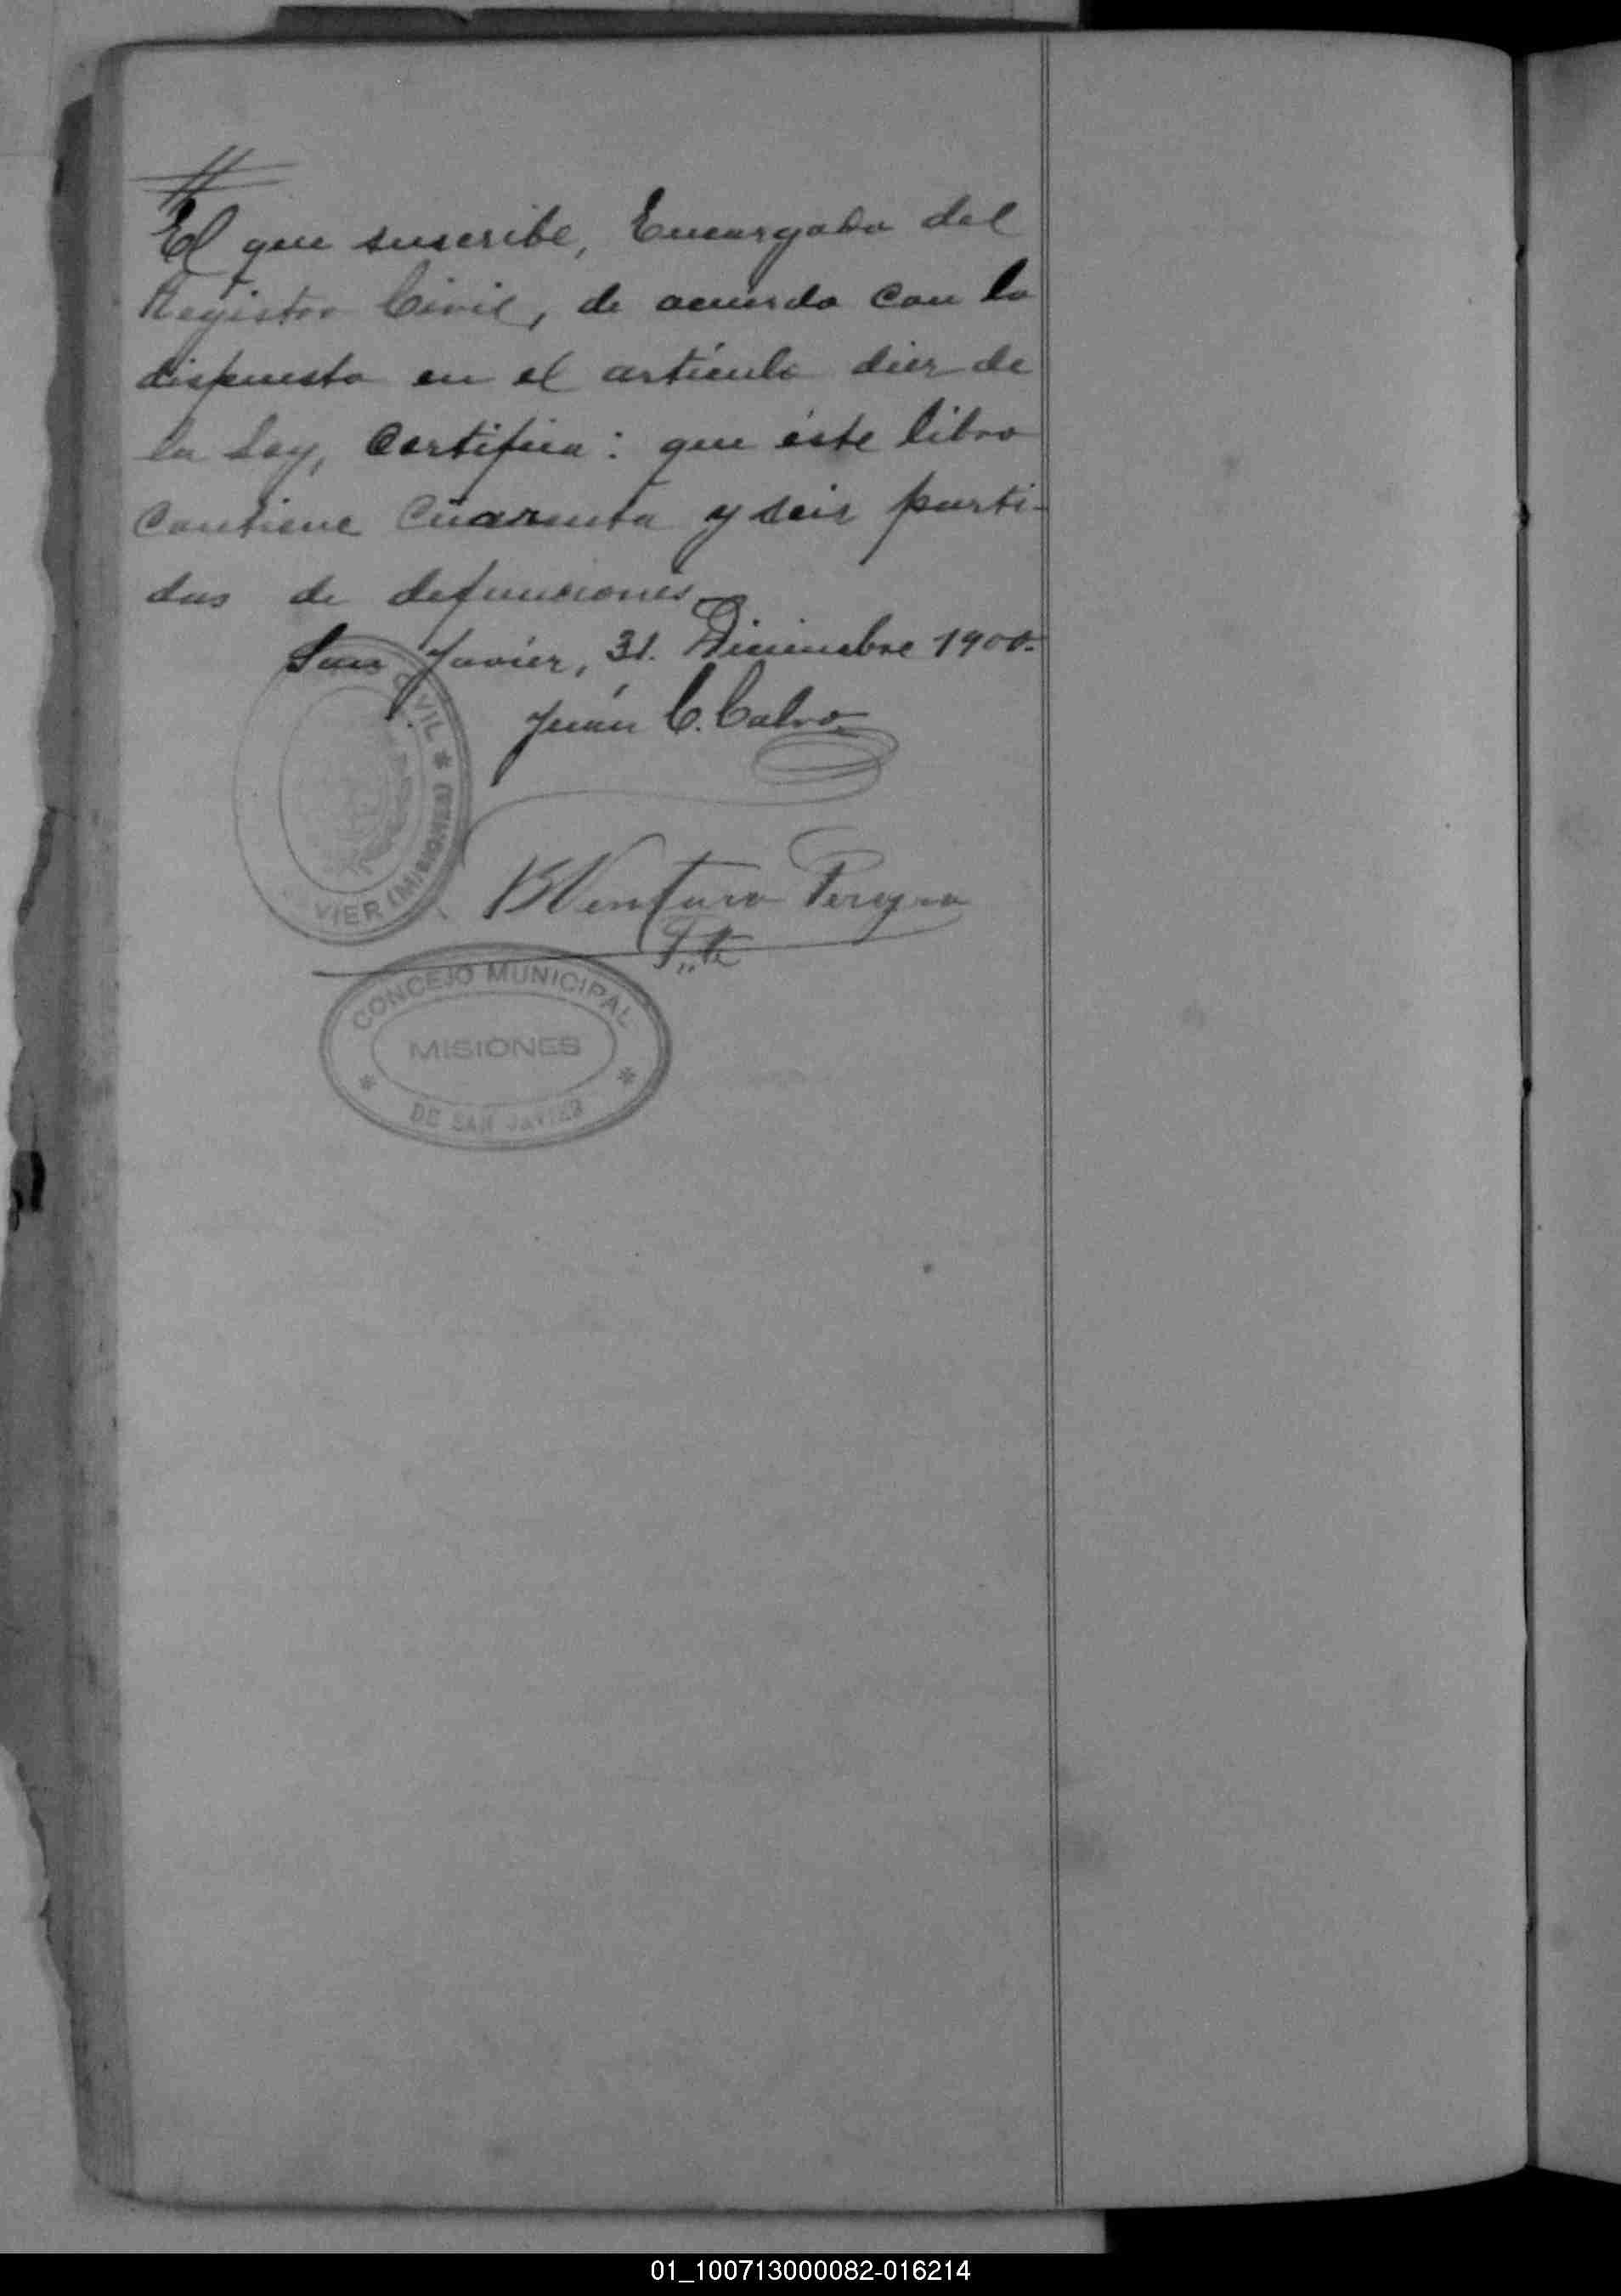 El que suscribe, Encargado del
Registro Civil, de acuerdo con lo
dispuesto en el artículo diez de
la Ley, Certifica: que éste libro
contiene cuarenta y seis parti-
das de defunciones.
San Javier, 31. Diciembre 1900.
Juan C. Calvo
CIVIL * VIER (MISIONES)
BVentura Pereyra
P,,te
CONCEJO MUNICIPAL
MISIONES
* *
DE SAN JAVIER
01_100713000082-016214